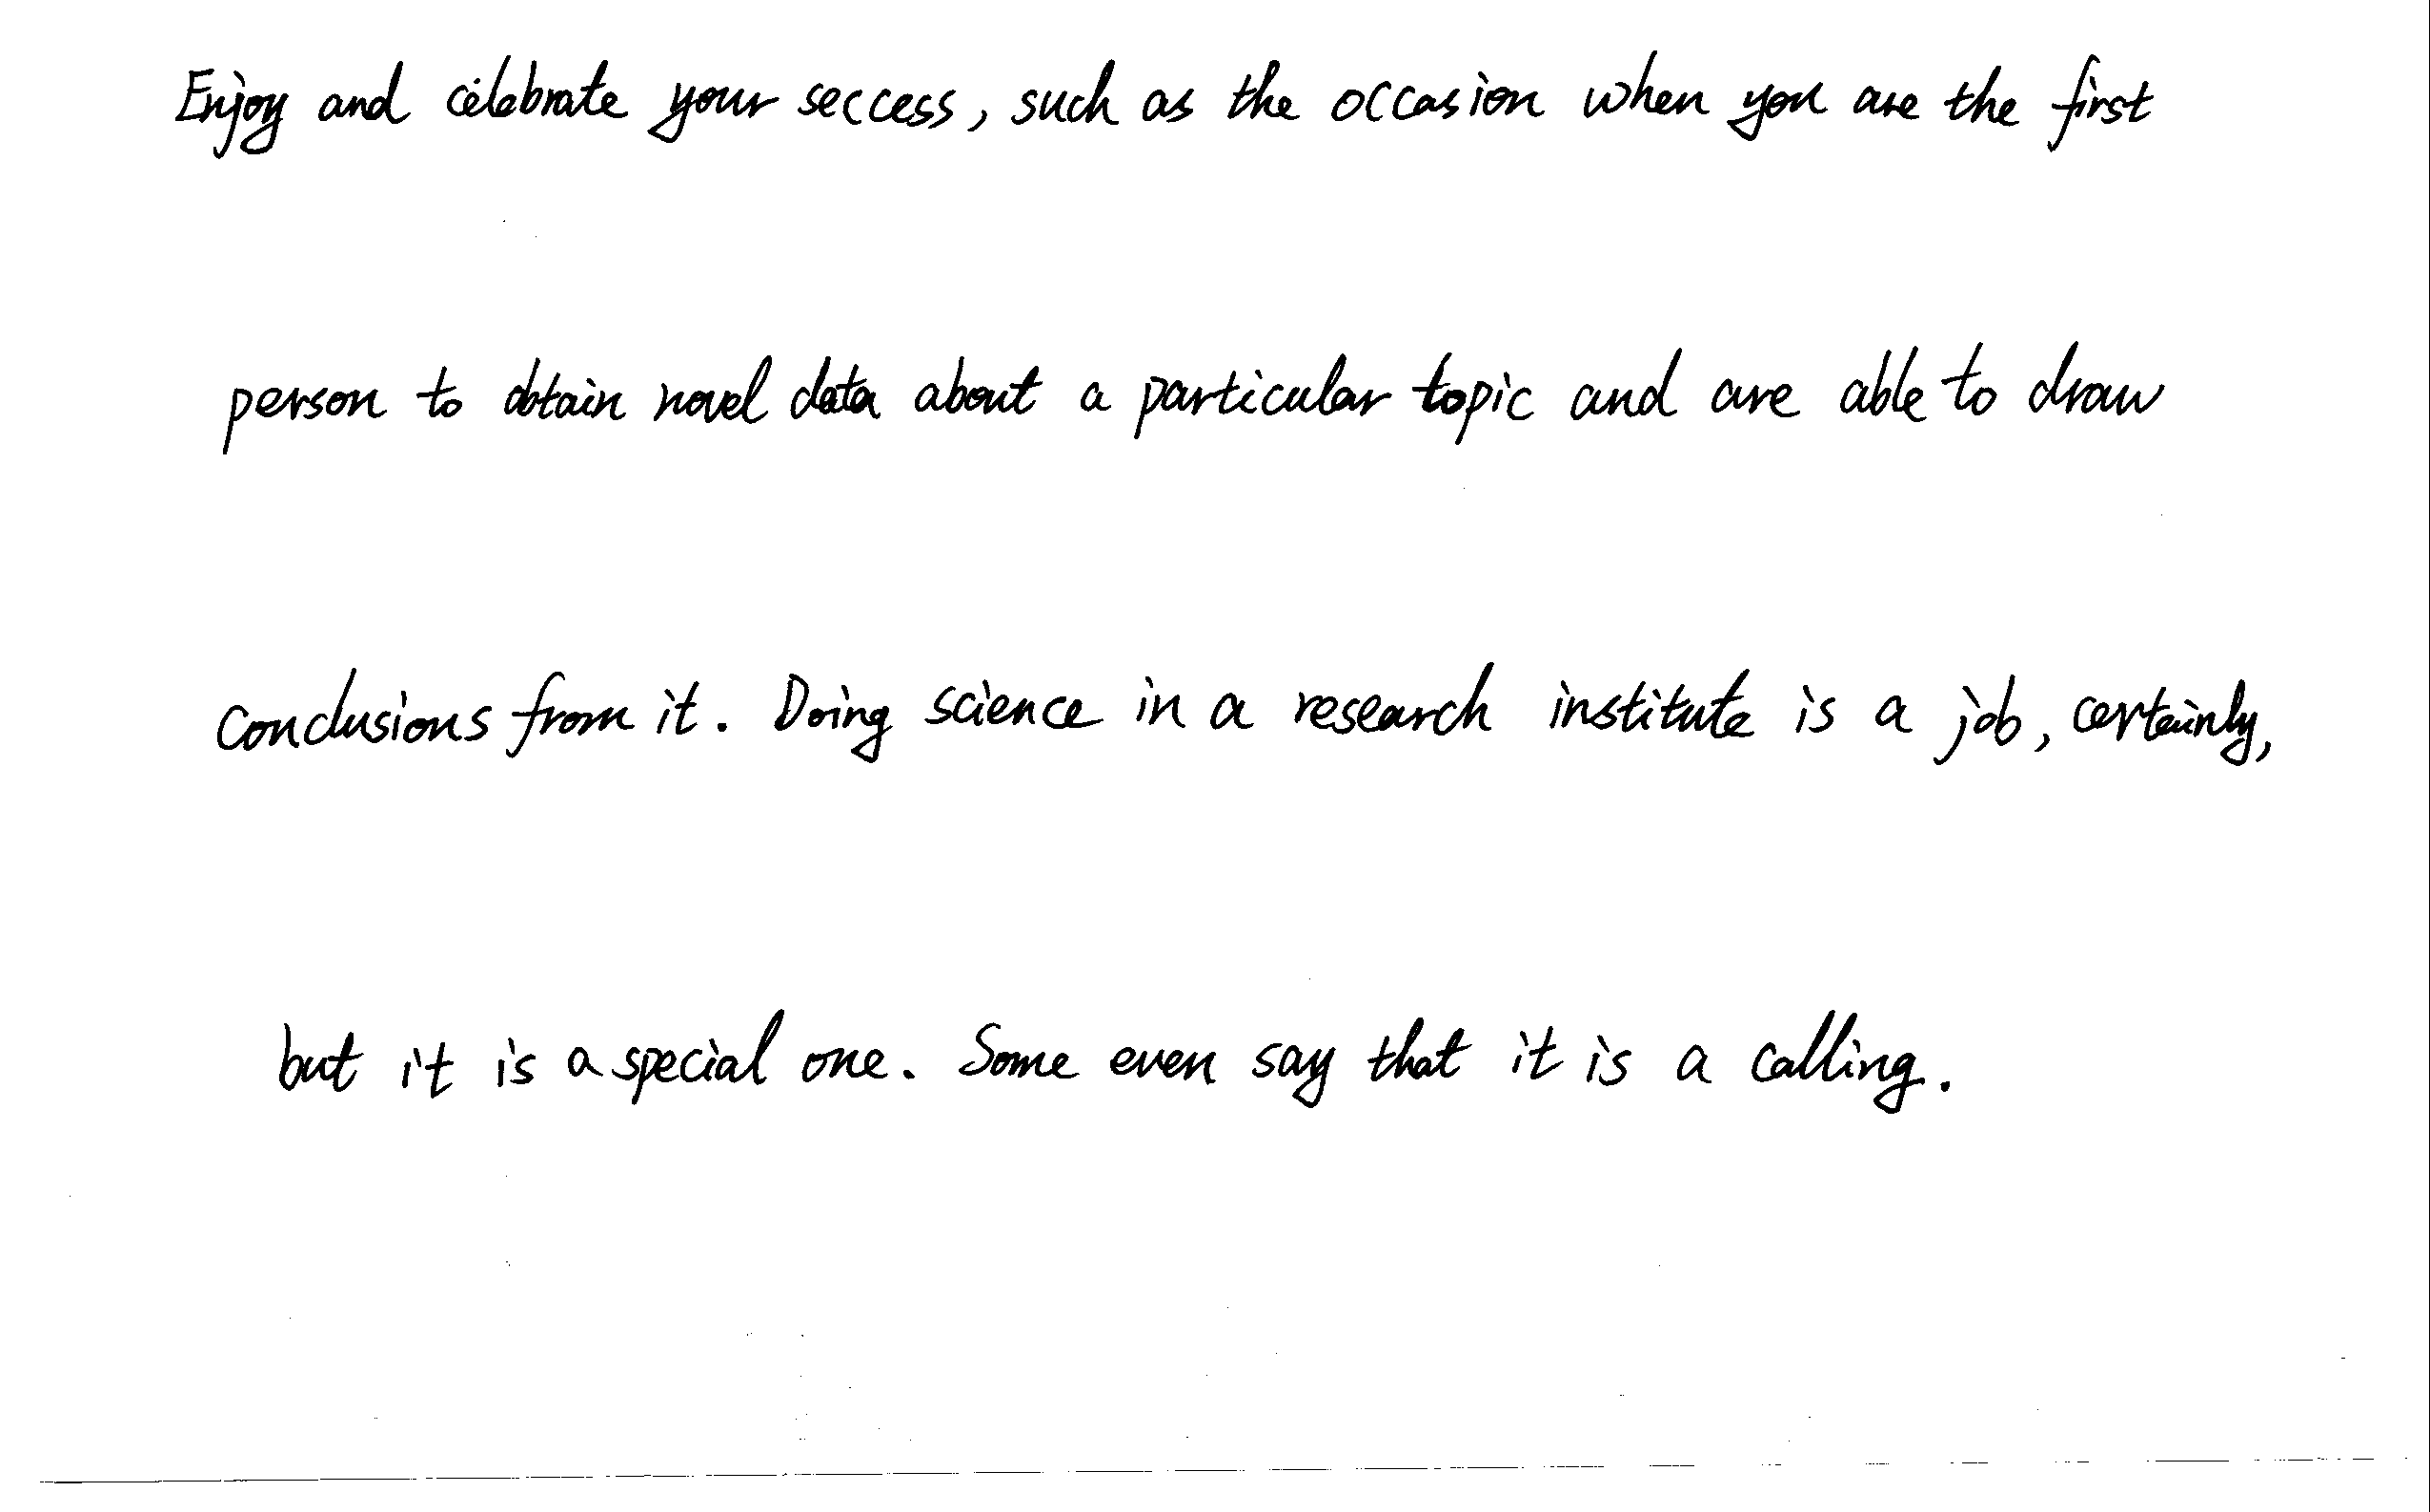 Enjoy and celebrate your seccess, such as the occasion when you are the first
person to obtain novel data about a particular topic and are able to draw
conclusions from it. Doing science in a research institute is a job, certainly,
but it is a special one. Some even say that it is a calling.